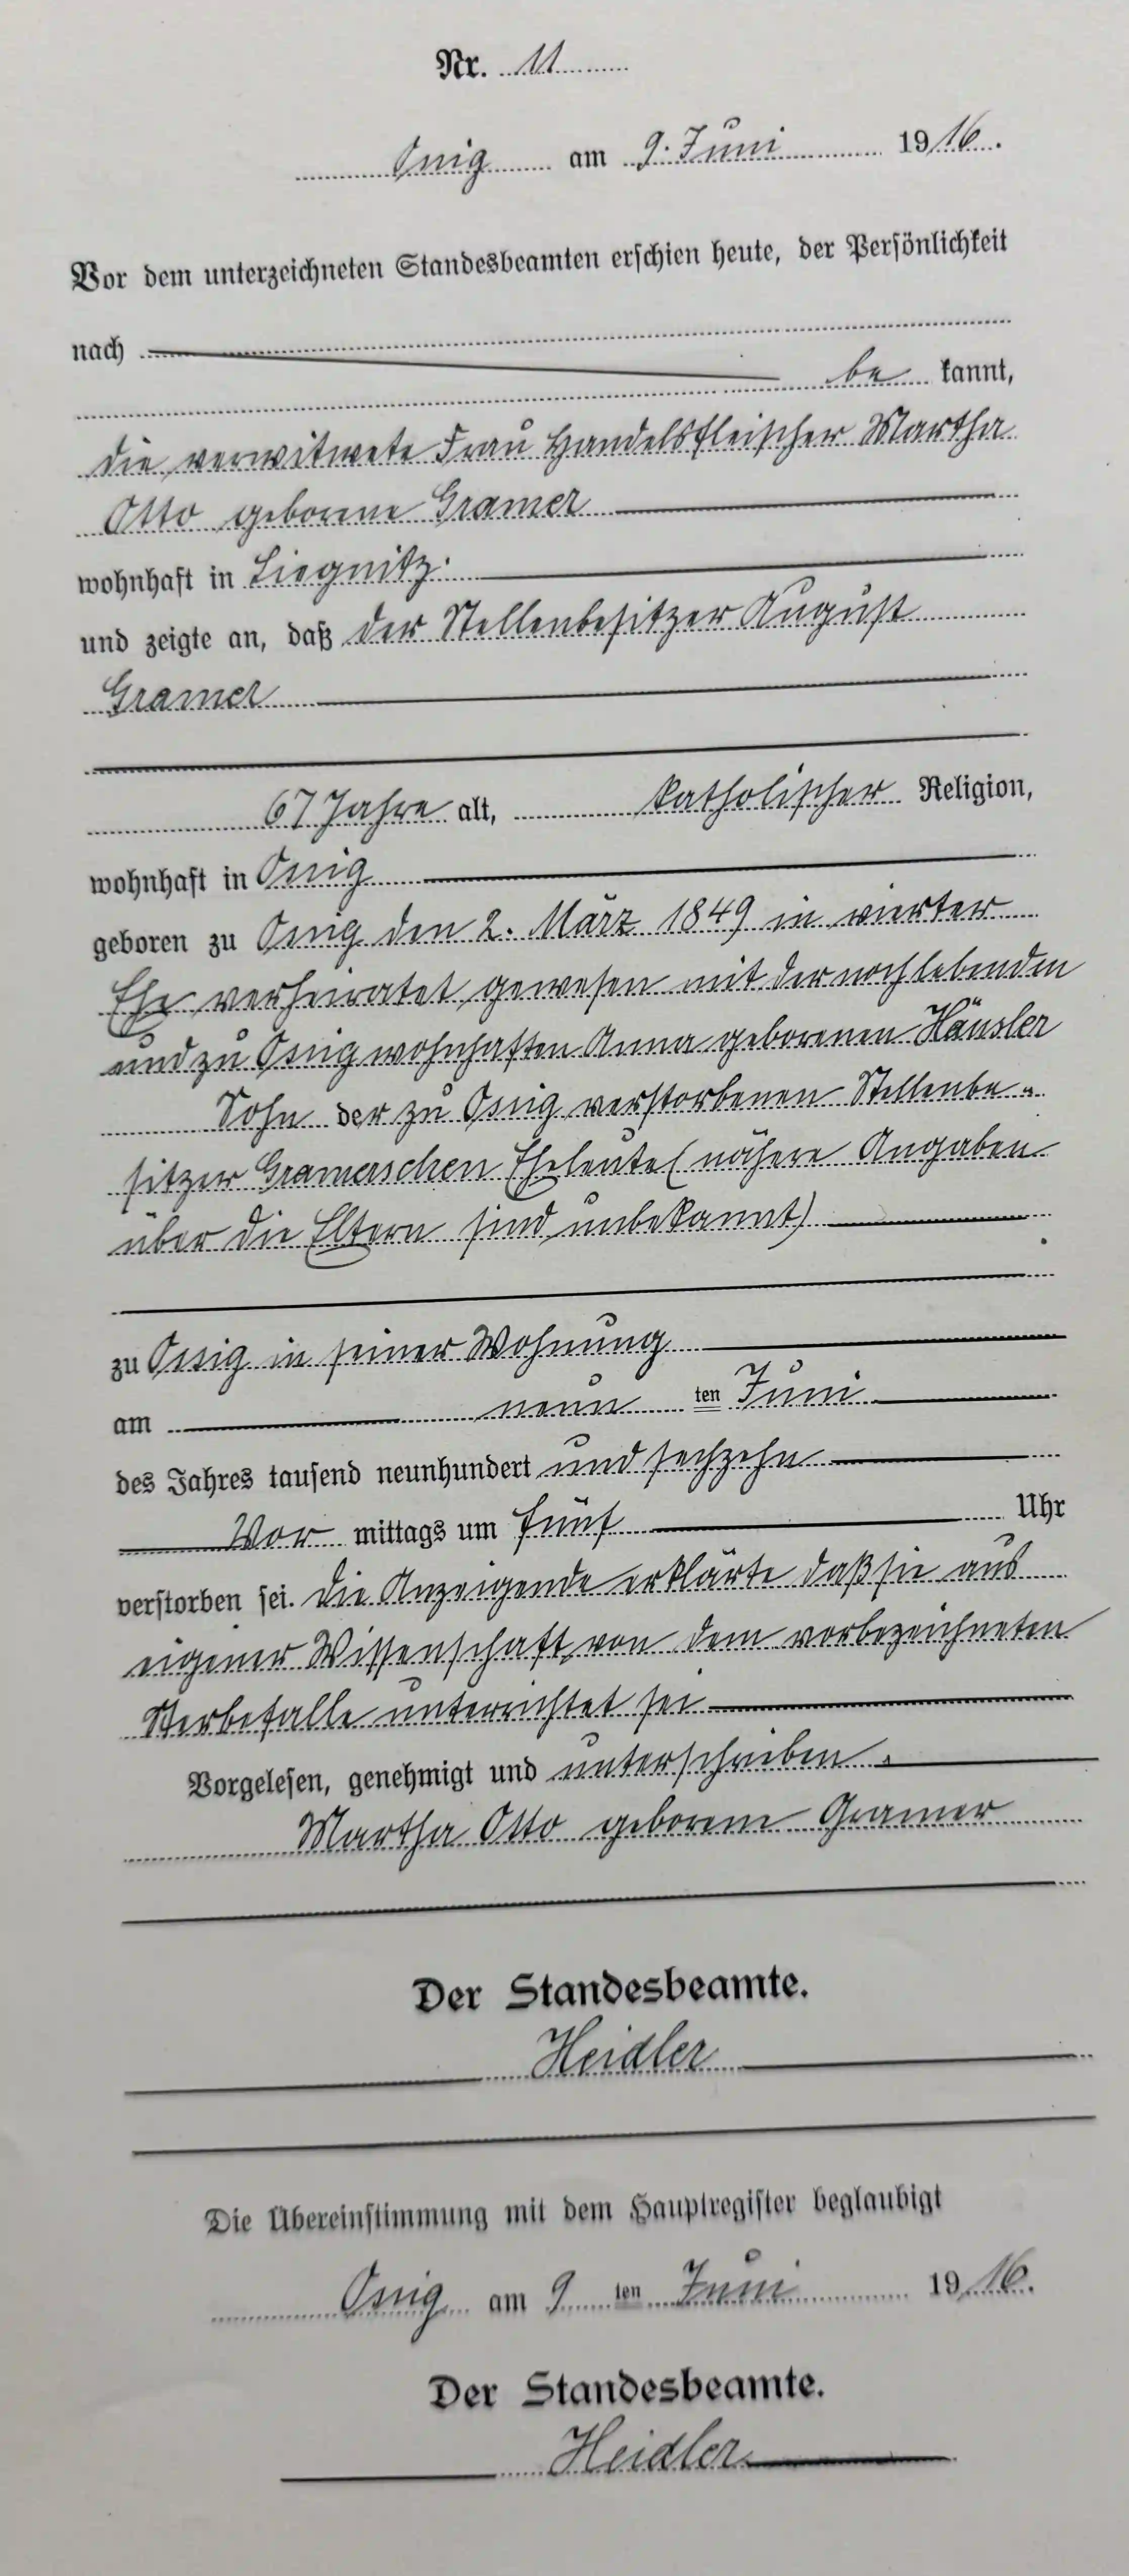 Nr. 11
Ossig am 9. Juni 1916.
Vor dem unterzeichneten Standesbeamten erschien heute, der Persönlichkeit
nach
be kannt,
die verwitwete Frau Handelsfleischer Martha
Otto geborene Gramer
wohnhaft in Liegnitz.
und zeigte an, daß der Stellenbesitzer August
Gramer
67 Jahre alt, katholischer Religion,
wohnhaft in Ossig
geboren zu Ossig den 2. März 1849 in vierter
Ehe verheiratet gewesen mit der noch lebenden
und zu Ossig wohnhaften Anna geborenen Häusler
Sohn der zu Ossig verstorbenen Stellenbe-
sitzer Gramerschen Eheleute (nähere Angaben
über die Eltern sind unbekannt)
zu Ossig in seiner Wohnung
am neun ten Juni
des Jahres tausend neunhundert und sechzehn
Vor mittags um fünf Uhr
verstorben sei. Die Anzeigende erklärte daß sie aus
eigener Wissenschaft von dem vorbezeichneten
Sterbefalle unterrichtet sei
Vorgelesen, genehmigt und unterschrieben.
Martha Otto geborene Gramer
Der Standesbeamte.
Heidler
Die Übereinstimmung mit dem Hauptregister beglaubigt
Ossig am 9 ten Juni 1916.
Der Standesbeamte.
Heidler